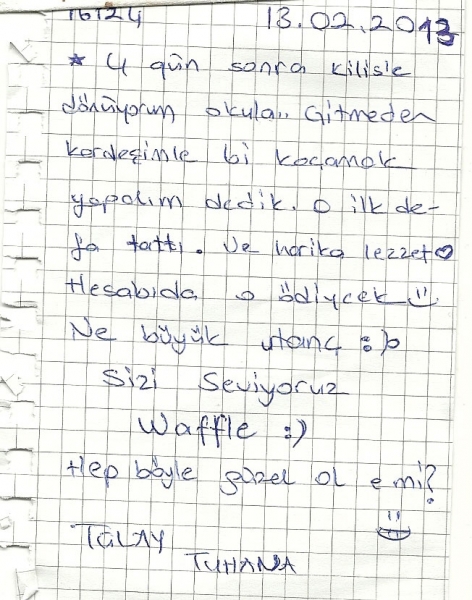 16:24 13.02.2013
* 4 gün sonra kilis'e
dönüyorum okula.. Gitmeden
kardeşimle bi kaçamak
yapalım dedik. O ilk de-
fa tattı. Ve harika lezzet
Hesabıda o ödiycek
Ne büyük utanç :)
Sizi Seviyoruz
Waffle :)
Hep böyle güzel ol e mi?
TÜLAY
TUHANA